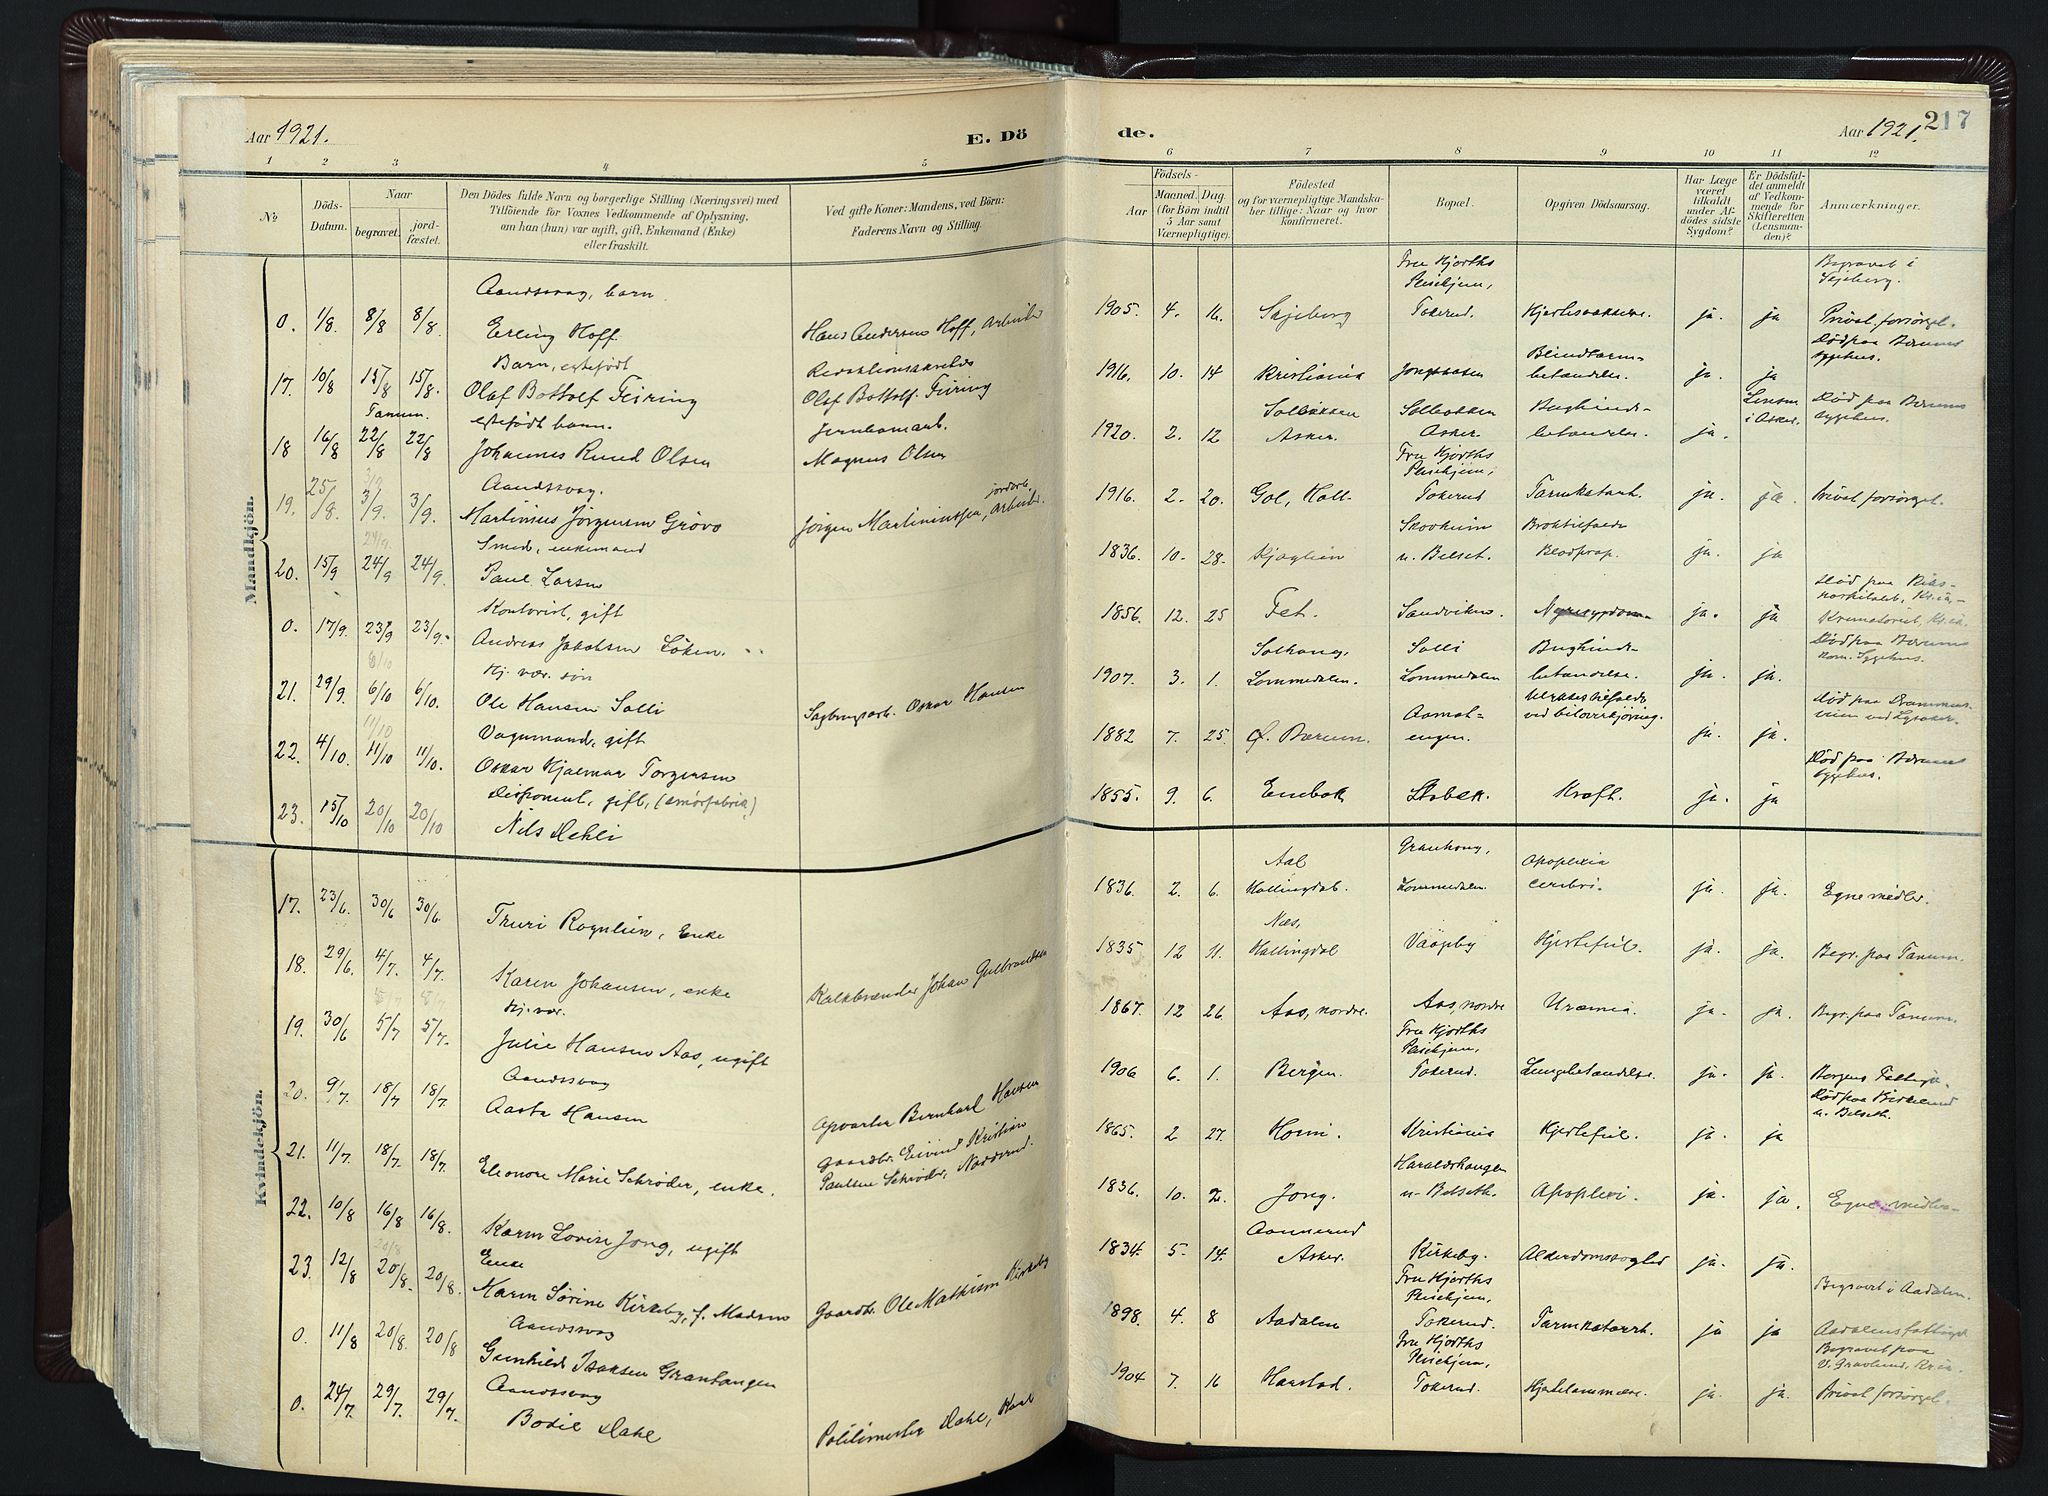 Aar 1921.
E. Dö
de.
Aar 1921.
217
1 2 3 4 5 6 7 8 9 10 11 12
No
Döds-
Datum.
Naar
begravet.
jord-
fæstet.
Den Dödes fulde Navn og borgerlige Stilling (Næringsvei) med
Tilföiende for Voxnes Vedkommende af Oplysning,
om han (hun) var ugift, gift, Enkemand (Enke)
eller fraskilt.
Ved gifte Koner: Mandens, ved Börn:
Faderens Navn og Stilling.
Födsels-
Aar
Maaned. Dag.
(for Börn indtil
5 Aar samt
Værnepligtige).
Födested
og for værnepligtige Mandska-
ber tillige: Naar og hvor
konfirmeret.
Bopæl.
Opgiven Dödsaarsag.
Har Læge
været
tilkaldt
under Af-
dödes sidste
Sygdom?
Er Dödsfal-
det anmeldt
af Vedkom-
mende for
Skifteretten
(Lensman-
den)?
Anmærkninger.
Mandkjön.
Aandssvag, barn.
Fru Hjorths
Pleiehjem,
Begravet i
Skjeberg.
0. 1/8. 8/8 8/8. Erling Hoff. Hans Andersen Hoff, Arbeider 1905. 4. 16. Skjeberg Tokerud. ja. ja Privat forsörget.
Barn, ektefödt
Blindtarm-
Död paa Bærums
sygehus.
17. 10/8 15/8 15/8. Olaf Bottolf Feiring Olaf Bottolf Feiring 1916. 10. 14 Kristiania betændelse. ja. ja
Tanum.
ektefödt barn.
Jernbanearb.
Solbakken
Solbakken
Bughinde-
Död paa Bærums
sygehus.
18 16/8 22/8 22/8 Johannes Ruud Olsen Magnus Olsen 1920. 2. 12 Asker. Asker. betændelse. ja.
Lensm.
i Asker.
Aandssvag.
Fru Hjorths
Pleiehjem,
19. 25/8 3/9. 3/9. Martinius Jörgensen Grövo 1916. 2. 20. Gol, Hall. Tokerud Tarmkatarrh. ja. ja. Privat forsörget.
24/9.
Smed, enkemand
20. 15/9 24/9 24/9. Paul Larsen 1836. 10. 28. u. Belset. ja. ja
Kontorist, gift
0. 17/9. 23/9 23/9. Andreas Jakobsen Löken. 1856. 12. 25 Fet. Sandviken. ja. ja
Död paa Riks-
hospitalet, Kr.ia,
Krematoriet, Kr.ia.
6/10
Solhaug,
Solli
Bughinde-
Död paa Bærums
kom. Sygehus.
21. 29/9. 6/10 6/10. Ole Hansen Solli Sagbrugsarb. Oskar Hansen 1907. 3. 1. Lommedalen. Lommedalen betændelse. ja. ja.
11/10
Vognmand, gift
ved biloverkjöring.
Död paa Drammens-
veien ved Lysaker.
22. 4/10. 11/10 11/10. Oskar Hjalmar Torgersen 1882 7. 25. Ö. Bærum. ja. ja.
Disponent, gift, (smörfabrik)
Död paa Bærums
sygehus.
23. 15/10 20/10 20/10 Nils Dehli 1855. 9. 6. Enebak Stabæk. Kræft. ja. ja
Kvindekjön.
Aal
Grauhaug,
Apoplexia
17. 23/6. 30/6 30/6. Truri Rognlien, Enke 1836. 2. 6. Hallingdal. Lommedalen. cerebri. ja ja. Egne midler.
Næs,
18. 29/6. 4/7. 4/7. Karen Johansen, enke Kalkbrænder Johan Gulbrandsen 1835. 12 11. Hallingdal Vöyeby Hjertefeil. ja. ja. Begr. paa Tanum.
5/7 5/7
Hj. vær.
19. 30/6 5/7 5/7. Julie Hansen Aas, ugift 1867. 12 26. Aas, nordre. Aas, nordre Uræmia. ja. ja. Begr. paa Tanum.
Aandssvag
Fru Hjorths
Pleiehjem,
20. 9/7. 18/7 18/7. Aasta Hansen Opvarter Bernhard Hansen 1906 6. 1. Bergen. Tokerud. Lungebetændelse. ja. ja.
Död paa Kirkelund
u. Belseth.
21. 11/7 18/7. 18/7. Eleonore Marie Schröder, enke. Gaardbr. Eivind Kristian 1865. 2 27. Kristiania Hjertefeil. ja. ja
Paulsen Schröder, Nadderud.
Haraldshaugen
22. 10/8 16/8 16/8. Karen Lovise Jong, ugift 1836. 10. 2. Jong. u. Belseth. Apoplexi. ja. ja. Egne midler.
20/8
Enke
23. 12/8 20/8. 20/8. Maren Sörine Kirkeby, f. Madsen Gaardbr. Ole Mathisen Kirkeby 1834. 5. 14. Asker. Kirkeby. ja. ja.
Aandssvag
Fru Hjorths
Pleiehjem,
Begravet i Aadalen.
0. 11/8 20/8. 20/8 Gunhild Isaksen Granhaugen 1898. 4. 8 Aadalen Tokerud. Tarmkatarrh. ja ja
Aandssvag
Fru Hjorths
Pleiehjem,
Begravet paa
V. Gravlund, Kr.ia.
0. 24/7. 29/7. 29/7. Bodil Dahl Politimester Dahl, 1904 7. 16 Harstad. Tokerud. ja. ja. Privat forsörget.